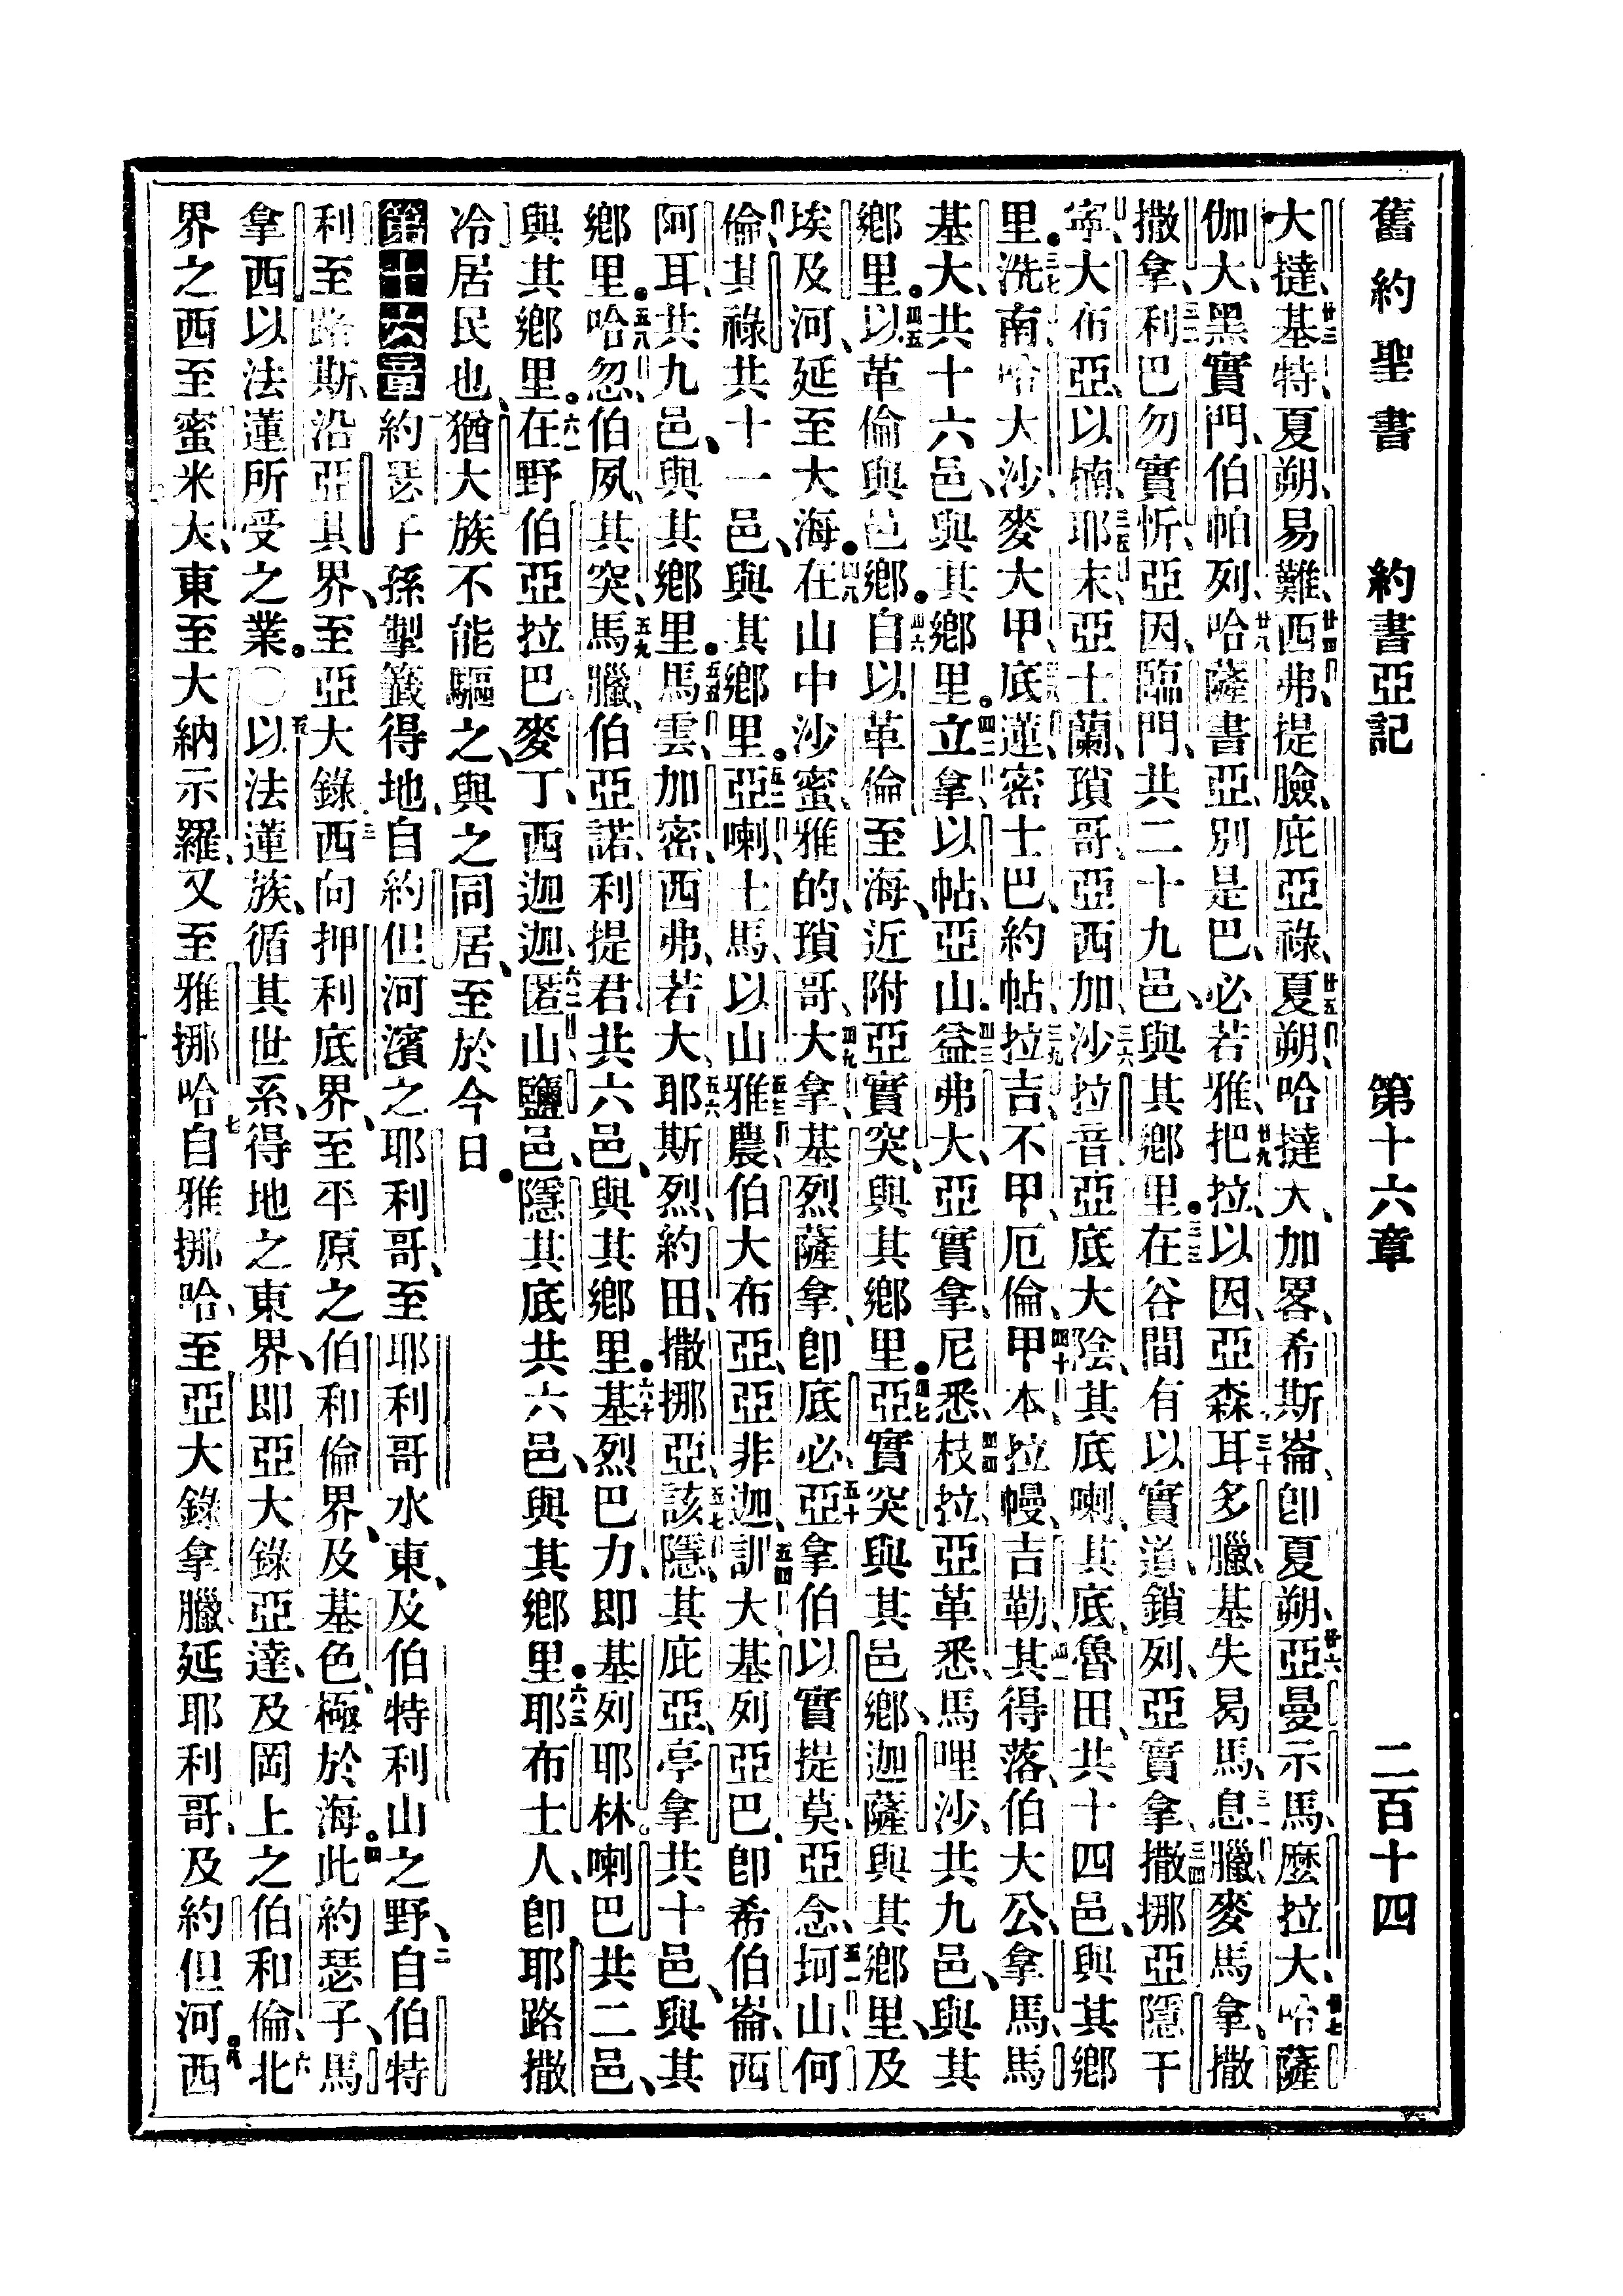 舊約聖書 約書亞記 第十六章 二百十四
大撻、廿三基特、夏朔、易難、廿四西弗、提臉、庇亞祿、廿五夏朔、哈撻大、加畧、希斯崙、卽夏朔、廿六亞曼、示馬、麽拉大、廿七哈薩
伽大、黑實門、伯帕列、廿八哈薩書亞、別是巴、必若雅、廿九把拉、以因、亞森、三十耳多臘、基失、曷馬、三一息臘、麥馬拿、撒
撒拿、三二利巴勿、實忻、亞因、臨門、共二十九邑、與其鄉里。三三在谷間有以實道、鎖列、亞實拿、三四撒挪亞、隱干
寧、大布亞、以楠、三五耶末、亞士蘭、瑣哥、亞西加、三六沙拉音、亞底大陰、其底喇、其底魯田、共十四邑、與其鄉
里。三七洗南、哈大沙、麥大甲、三八底蓮、密士巴、約帖、三九拉吉、不甲、厄倫、四十甲本、拉幔、吉勒、四一其得落、伯大公、拿馬、馬
基大、共十六邑、與其鄉里。四二立拿、以帖、亞山、四三益弗大、亞實拿、尼悉、四四枝拉、亞革悉、馬哩沙、共九邑、與其
鄉里。四五以革倫與邑鄉。四六自以革倫至海、近附亞實突、與其鄉里。四七亞實突與其邑鄉、迦薩與其鄉里、及
埃及河、延至大海。四八在山中沙蜜、雅的、瑣哥、四九大拿、基烈薩拿、卽底必、五十亞拿伯、以實提莫、亞念、五一坷山、何
倫、其祿、共十一邑、與其鄉里。五二亞喇、土馬、以山、五三雅農、伯大布亞、亞非迦、五四訓大、基列亞巴、卽希伯崙、西
阿耳、共九邑、與其鄉里。五五馬雲、加密、西弗、若大、五六耶斯烈、約田、撒挪亞、五七該隱、其庇亞、亭拿、共十邑、與其
鄉里。五八哈忽、伯夙、其突、五九馬臘、伯亞諾、利提君、共六邑、與其鄉里。六十基烈巴力、即基列耶林、喇巴、共二邑、
與其鄉里。六一在野伯亞拉巴、麥丁、西迦迦、六二匿山、鹽邑、隱其底、共六邑、與其鄉里。六三耶布士人、卽耶路撒
冷居民也、猶大族不能驅之、與之同居、至於今日。
第十六章 約瑟子孫掣籤得地、自約但河濱之耶利哥、至耶利哥水東、及伯特利山之野、二自伯特
利至路斯、沿亞其界、至亞大錄、三西向押利底界、至平原之伯和倫界、及基色、極於海。四此約瑟子、馬
拿西以法蓮所受之業。〇五以法蓮族、循其世系、得地之東界、即亞大錄亞達、及岡上之伯和倫、六北
界之西至蜜米大、東至大納示羅、又至雅挪哈、七自雅挪哈、至亞大錄拿臘、延耶利哥、及約但河。八西